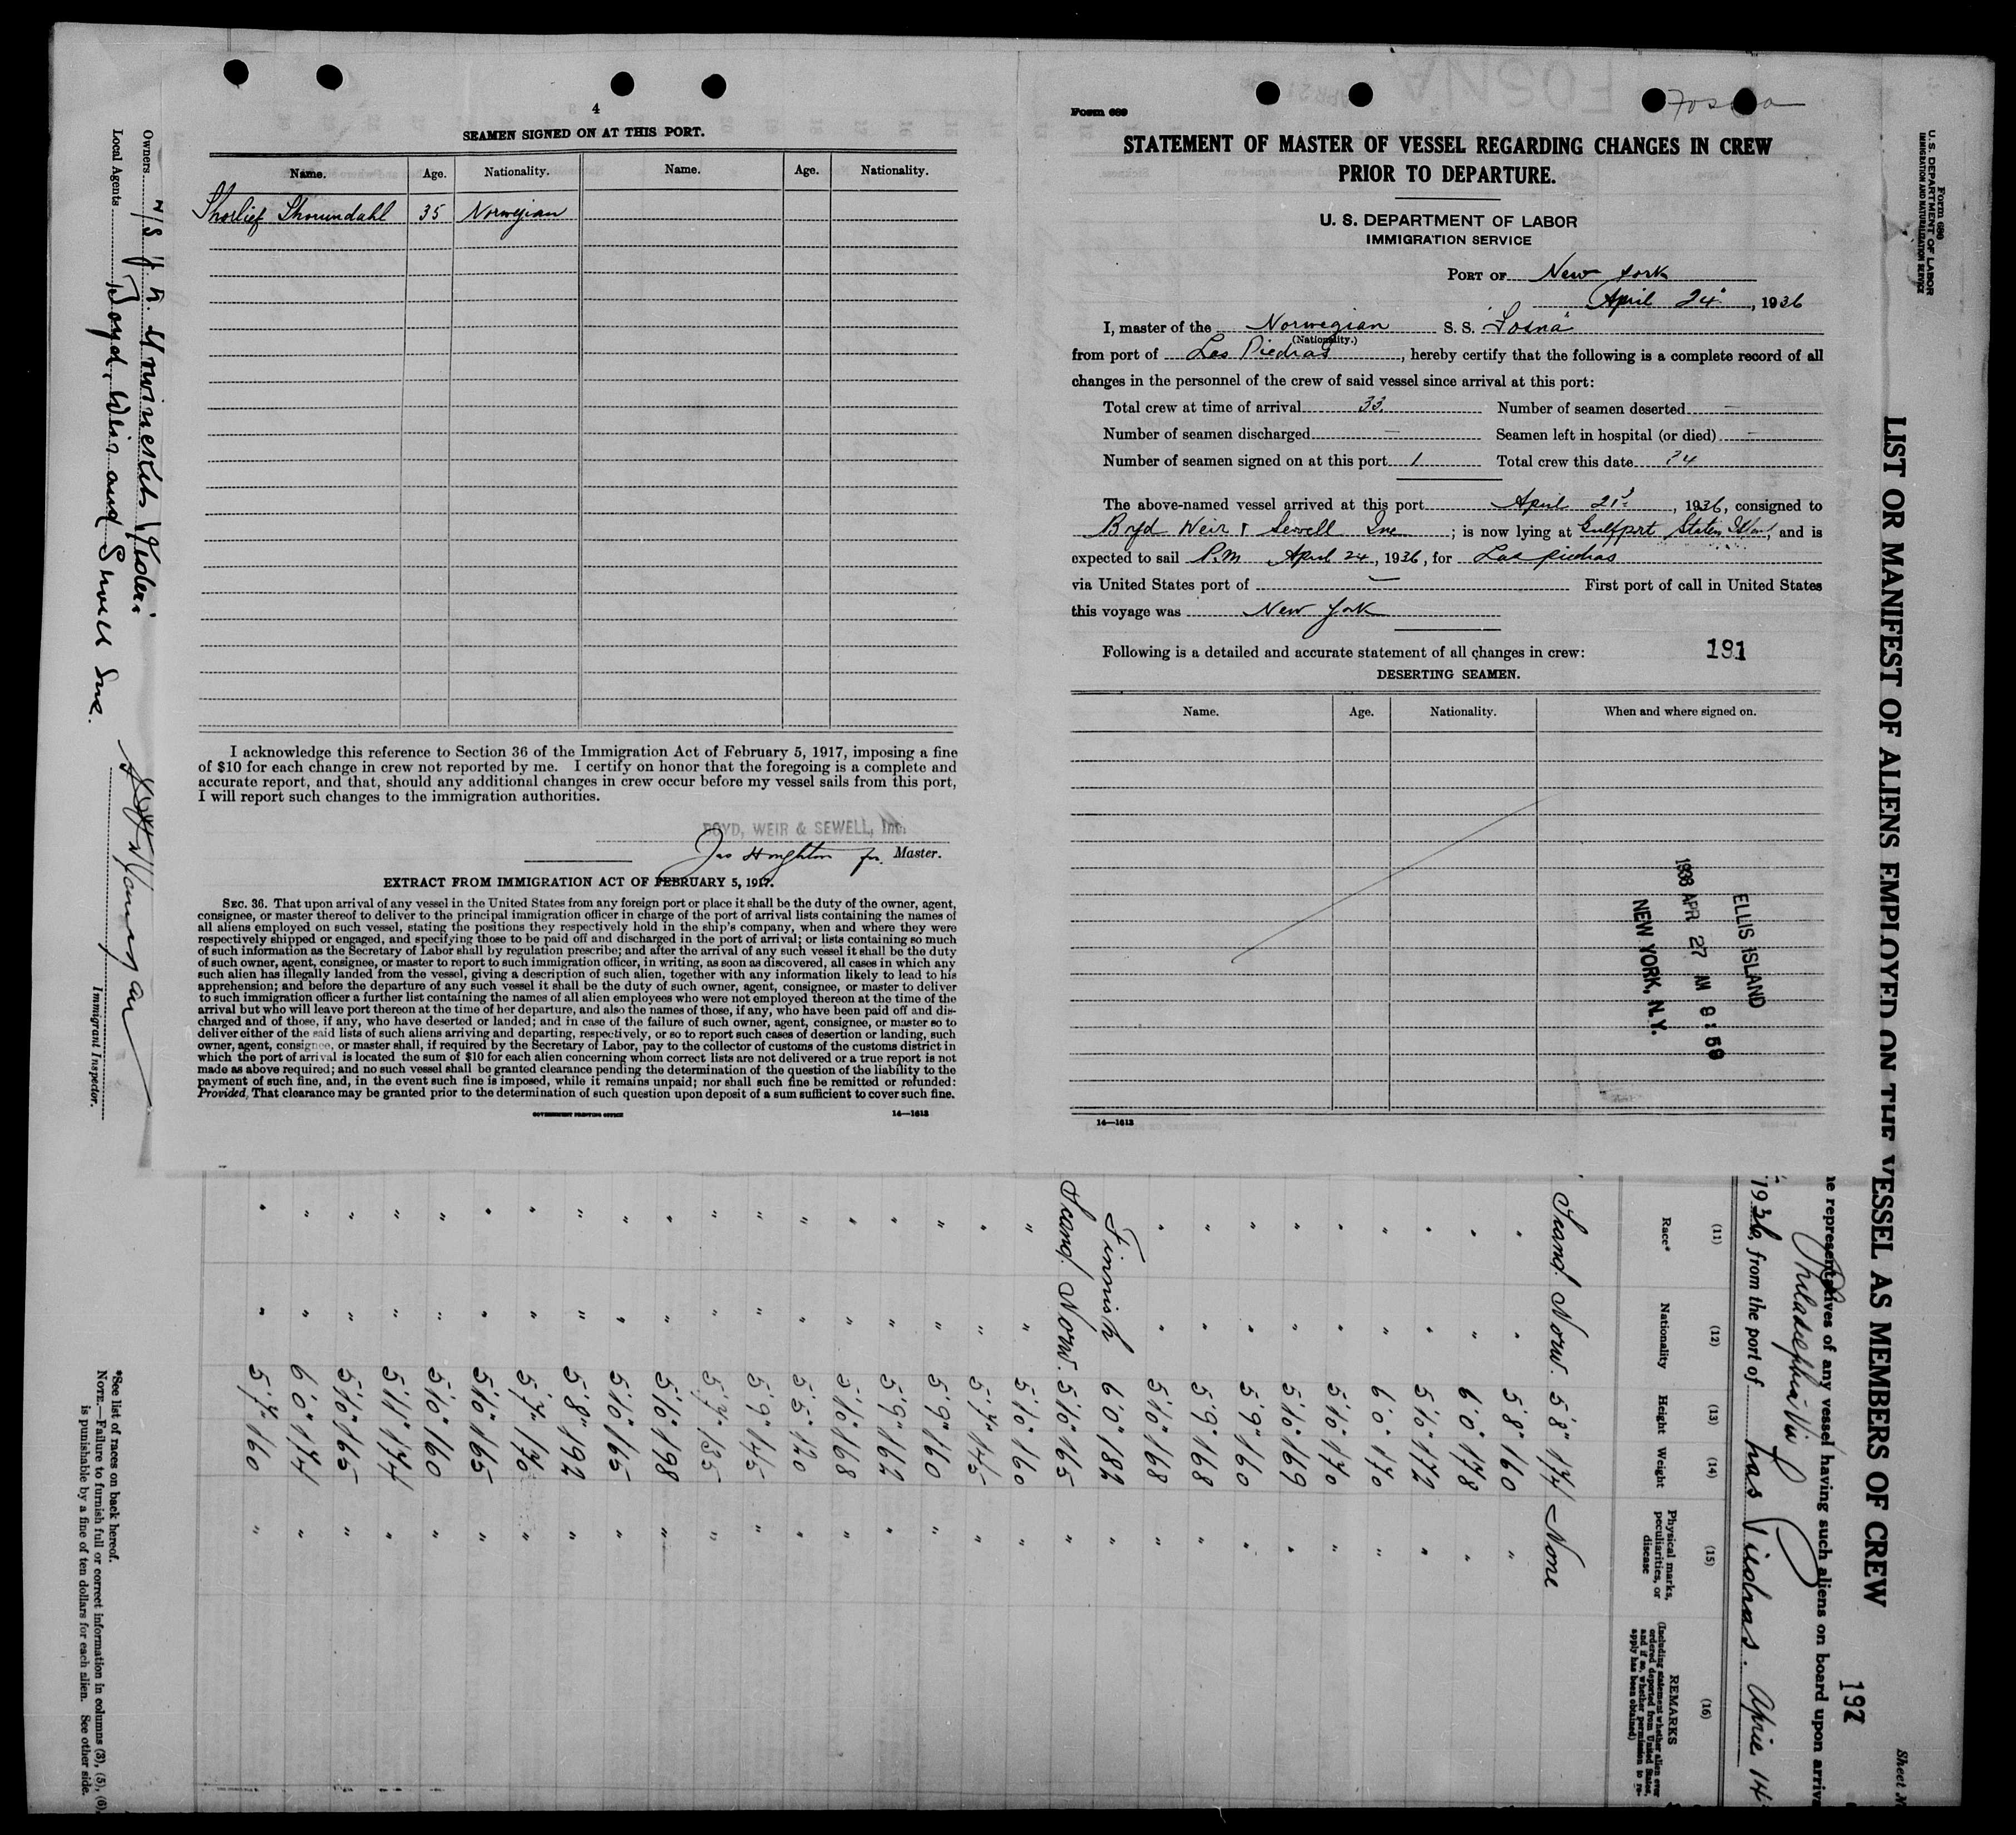 4
SEAMEN SIGNED ON AT THIS PORT.
Name. Age. Nationality. Name. Age. Nationality.
35 Norwegian
I acknowledge this reference to Section 36 of the Immigration Act of February 5, 1917, imposing a fine
of $10 for each change in crew not reported by me. I certify on honor that the foregoing is a complete and
accurate report, and that, should any additional changes in crew occur before my vessel sails from this port,
I will report such changes to the immigration authorities.
BOYD, WEIR & SEWELL, Inc.
Jas Houghton for Master.
EXTRACT FROM IMMIGRATION ACT OF FEBRUARY 5, 1917.
SEC. 36. That upon arrival of any vessel in the United States from any foreign port or place it shall be the duty of the owner, agent,
consignee, or master thereof to deliver to the principal immigration officer in charge of the port of arrival lists containing the names of
all aliens employed on such vessel, stating the positions they respectively hold in the ship's company, when and where they were
respectively shipped or engaged, and specifying those to be paid off and discharged in the port of arrival; or lists containing so much
of such information as the Secretary of Labor shall by regulation prescribe; and after the arrival of any such vessel it shall be the duty
of such owner, agent, consignee, or master to report to such immigration officer, in writing, as soon as discovered, all cases in which any
such alien has illegally landed from the vessel, giving a description of such alien, together with any information likely to lead to his
apprehension; and before the departure of any such vessel it shall be the duty of such owner, agent, consignee, or master to deliver
to such immigration officer a further list containing the names of all alien employees who were not employed thereon at the time of the
arrival but who will leave port thereon at the time of her departure, and also the names of those, if any, who have been paid off and dis-
charged and of those, if any, who have deserted or landed; and in case of the failure of such owner, agent, consignee, or master so to
deliver either of the said lists of such aliens arriving and departing, respectively, or so to report such cases of desertion or landing, such
owner, agent, consignee, or master shall, if required by the Secretary of Labor, pay to the collector of customs of the customs district in
which the port of arrival is located the sum of $10 for each alien concerning whom correct lists are not delivered or a true report is not
made as above required; and no such vessel shall be granted clearance pending the determination of the question of the liability to the
payment of such fine, and, in the event such fine is imposed, while it remains unpaid; nor shall such fine be remitted or refunded:
Provided, That clearance may be granted prior to the determination of such question upon deposit of a sum sufficient to cover such fine.
GOVERNMENT PRINTING OFFICE 14—1613
Form 689
Fosna
STATEMENT OF MASTER OF VESSEL REGARDING CHANGES IN CREW
PRIOR TO DEPARTURE.
U. S. DEPARTMENT OF LABOR
IMMIGRATION SERVICE
PORT OF New York
April 24, 1936
I, master of the Norwegian S. S. "Fosna"
(Nationality.)
from port of Las Piedras, hereby certify that the following is a complete record of all
changes in the personnel of the crew of said vessel since arrival at this port:
Total crew at time of arrival 33 Number of seamen deserted —
Number of seamen discharged — Seamen left in hospital (or died) —
Number of seamen signed on at this port 1 Total crew this date 34
The above-named vessel arrived at this port April 21, 1936, consigned to
Boyd Weir & Sewell Inc; is now lying at Gulfport Staten Island, and is
expected to sail P.M April 24, 1936, for Las piedras
via United States port of — First port of call in United States
this voyage was New York
Following is a detailed and accurate statement of all changes in crew: 191
DESERTING SEAMEN.
Name. Age. Nationality. When and where signed on.
ELLIS ISLAND
1936 APR 27 AM 9:59
NEW YORK, N.Y.
14—1613
Form 680
U. S. DEPARTMENT OF LABOR
IMMIGRATION AND NATURALIZATION SERVICE
LIST OR MANIFEST OF ALIENS EMPLOYED ON THE VESSEL AS MEMBERS OF CREW
Sheet N
197
representatives of any vessel having such aliens on board upon arriva
Philadelphia
1936, from the port of Las Piedras. April 14
(11) (12) (13) (14) (15) (16)
Race* Nationality Height Weight Physical marks, peculiarities, or disease REMARKS
(Including statement whether alien ever
ordered deported from United States,
and if so, whether permission to re-
apply has been obtained)
Scand. Norw. 5'8" 174 None
" " 5'8" 160 "
" " 6'0" 178 "
" " 5'10" 172 "
" " 6'0" 170 "
" " 5'10" 170 "
" " 5'10" 169 "
" " 5'9" 160 "
" " 5'9" 168 "
" " 5'10" 168 "
Finnish 6'0" 182 "
Scand. Norw. 5'10" 165 "
" " 5'10" 160 "
" " 5'7" 145 "
" " 5'9" 160 "
" " 5'9" 162 "
" " 5'10" 168 "
" " 5'5" 120 "
" " 5'9" 145 "
" " 5'7" 135 "
" " 5'10" 198 "
" " 5'10" 165 "
" " 5'8" 192 "
" " 5'7" 170 "
" " 5'10" 165 "
" " 5'10" 160 "
" " 5'11" 174 "
" " 5'10" 165 "
" " 6'0" 174 "
" " 5'7" 160 "
Owners
Local Agents Boyd, Weir and Sewell Inc.
Immigrant Inspector.
*See list of races on back hereof.
NOTE.—Failure to furnish full or correct information in columns (3), (5), (6),
is punishable by a fine of ten dollars for each alien. See other side.